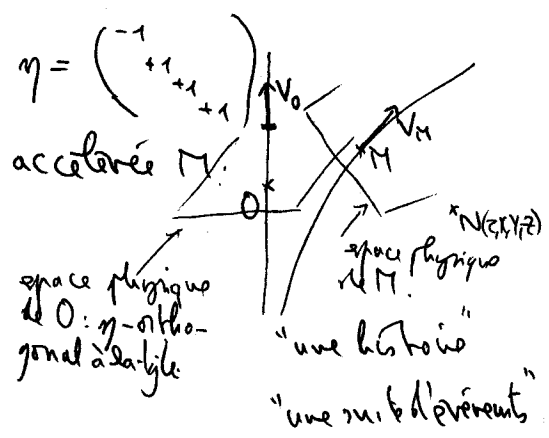 η = ( -1 +1 +1 +1 )
accélérée M.
V₀
V_M
M
O
N(τ,X,Y,Z)
espace physique
de O : η-ortho-
gonal à la
espace physique
de M.
"une histoire"
"une suite d'événements"